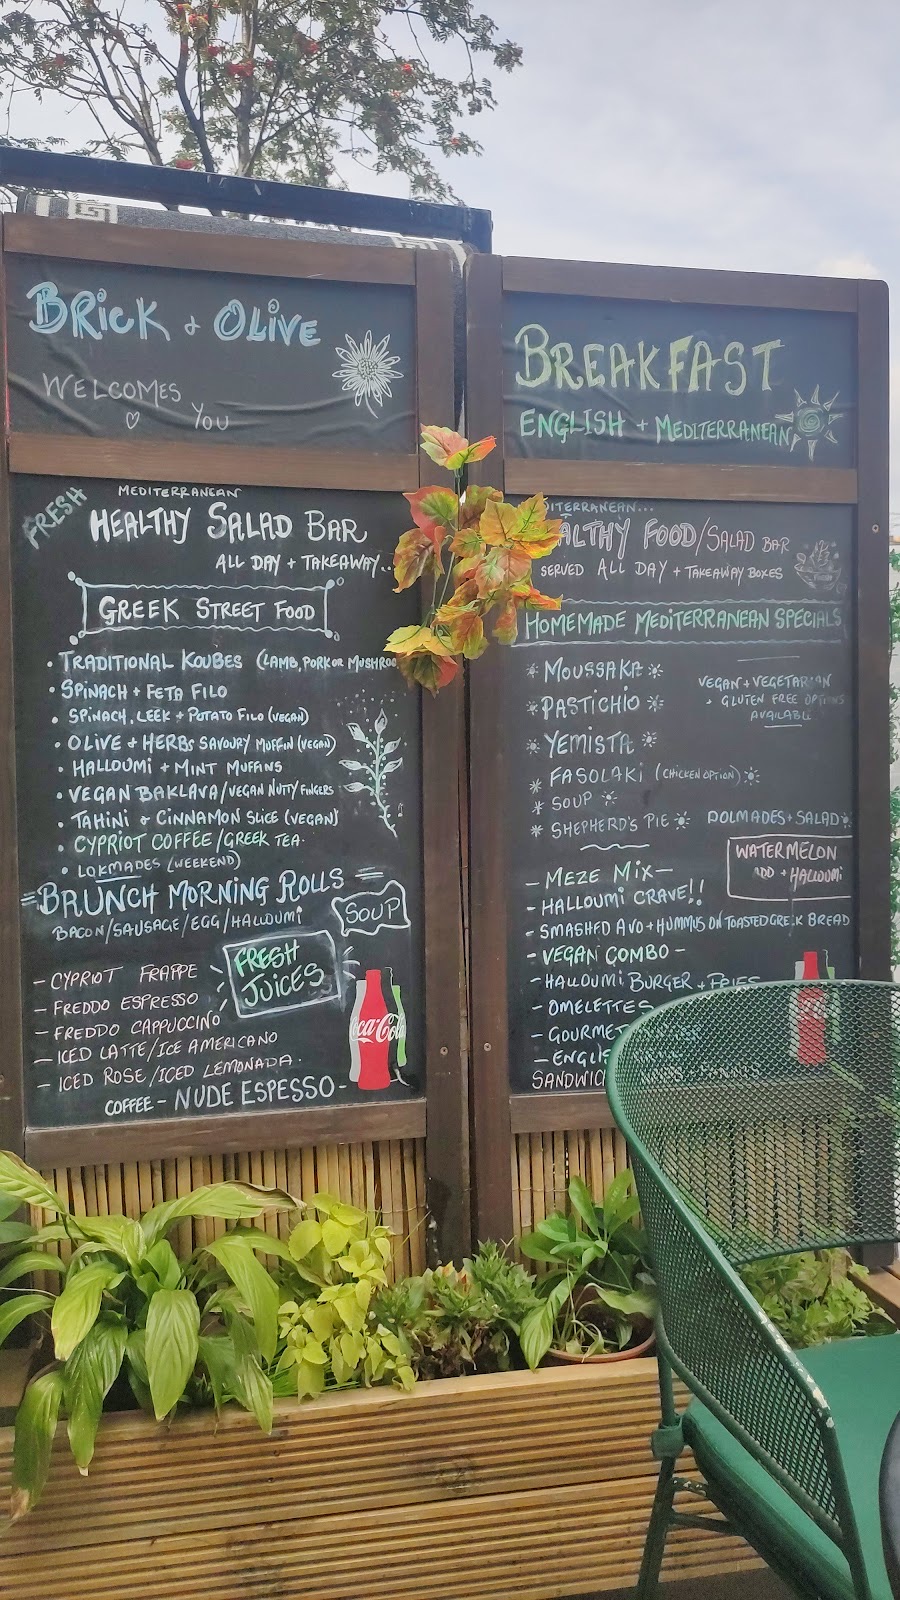 BRICK + OLIVE
WELCOMES
YOU
FRESH
MEDITERRANEAN
HEALTHY SALAD BAR
ALL DAY + TAKEAWAY..
GREEK STREET FOOD
• TRADITIONAL KOUBES (LAMB, PORK OR MUSHROO
• SPINACH + FETA FILO
• SPINACH, LEEK + POTATO FILO (VEGAN)
• OLIVE + HERBS SAVOURY MUFFIN (VEGAN)
• HALLOUMI + MINT MUFFINS
• VEGAN BAKLAVA/VEGAN NUTTY FINGERS
• TAHINI & CINNAMON SLICE (VEGAN)
• CYPRIOT COFFEE/GREEK TEA.
• LOKMADES (WEEKEND)
BRUNCH MORNING ROLLS
BACON/SAUSAGE/EGG/HALLOUMI
SOUP
FRESH
JUICES
- CYPRIOT FRAPPE
- FREDDO ESPRESSO
- FREDDO CAPPUCCINO
- ICED LATTE/ICE AMERICANO
- ICED ROSE/ICED LEMONADA.
COFFEE - NUDE ESPESSO -
Coca-Cola
BREAKFAST
ENGLISH + MEDITERRANEAN
ITERRANEAN...
ALTHY FOOD/SALAD BAR
SERVED ALL DAY + TAKEAWAY BOXES
HOMEMADE MEDITERRANEAN SPECIALS
MOUSSAKA
PASTICHIO
YEMISTA
FASOLAKI (CHICKEN OPTION)
SOUP
SHEPHERD'S PIE
VEGAN + VEGETARIAN
+ GLUTEN FREE OPTIONS
AVAILABLE
DOLMADES + SALAD
WATERMELON
ADD + HALLOUMI
- MEZE MIX -
- HALLOUMI CRAVE!!
- SMASHED AVO + HUMMUS ON TOASTED GREEK BREAD
- VEGAN COMBO -
- HALLOUMI BURGER + FRIES
- OMELETTES
- GOURMET
- ENGLIS
SANDWIC